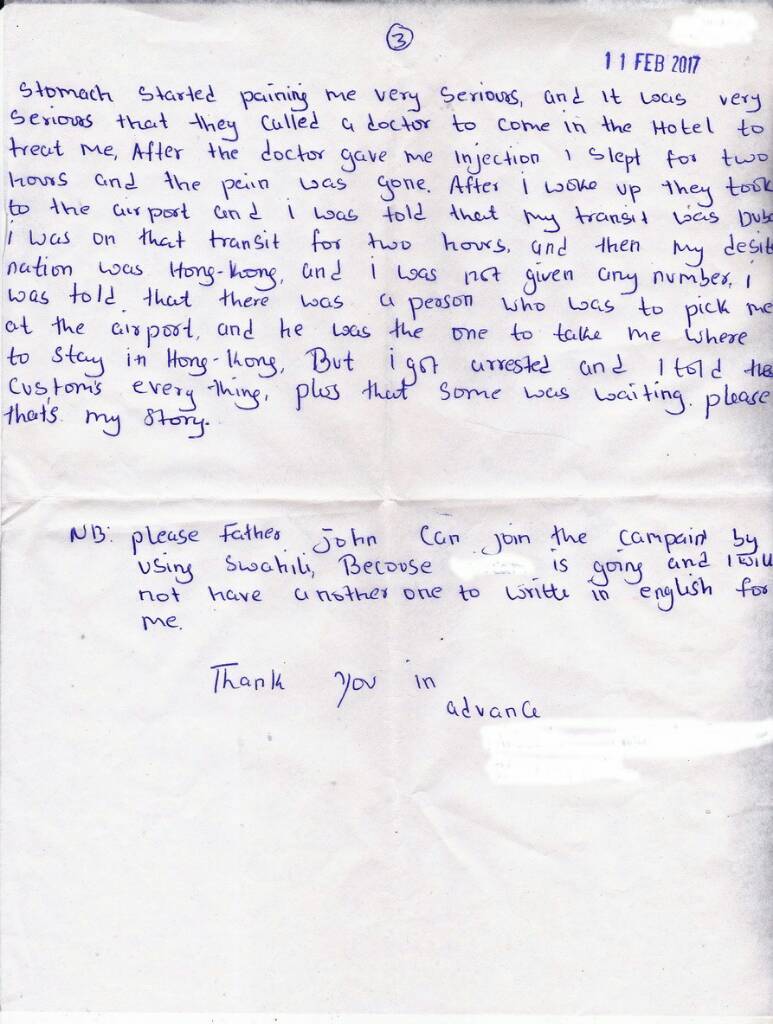 3
11 FEB 2017
Stomach started paining me very serious, and it was very
serious that they called a doctor to come in the Hotel to
treat me, After the doctor gave me injection i slept for two
hours and the pain was gone. After i woke up they took
to the airport and i was told that my transit was Dub
i was on that transit for two hours, and then my desti
nation was Hong-kong, and i was not given any number, i
was told that there was a person who was to pick me
at the airport, and he was the one to take me where
to stay in Hong-kong, But i got arrested and I told the
Custom's every thing, plus that some was waiting. please
that's my story.
NB: please Father John can join the campain by
using Swahili, Becouse is going and I will
not have another one to writte in english for
me.
Thank you in
advance